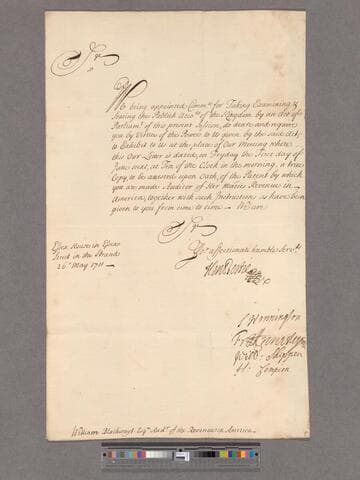 Sr
We being appointed Commrs for Taking Examining &
Stating the Publick Accots of the Kingdom by an Act of
Parliamt of this present Session, do desire and require
you by Virtue of the Powers to Us given by the said Act,
to Exhibit to Us at the place of Our Meeting where
this Our Letter is dated, on Fryday the First day of
June next, at Ten of the Clock in the morning, a true
Copy, to be answered upon Oath, of the Patent by which
you are made Auditor of Her Maties Revenue in
America, together with such Instructions as have been
given to you from time to time We are
Sr
Yor affectionate humble Servts
Essex House in Essex
Street in the Strand
26 May 1711
Hen
Hennington
Will: Shippen
H: Campion
William Blathwayt Esqr Audr of the Revenues in America